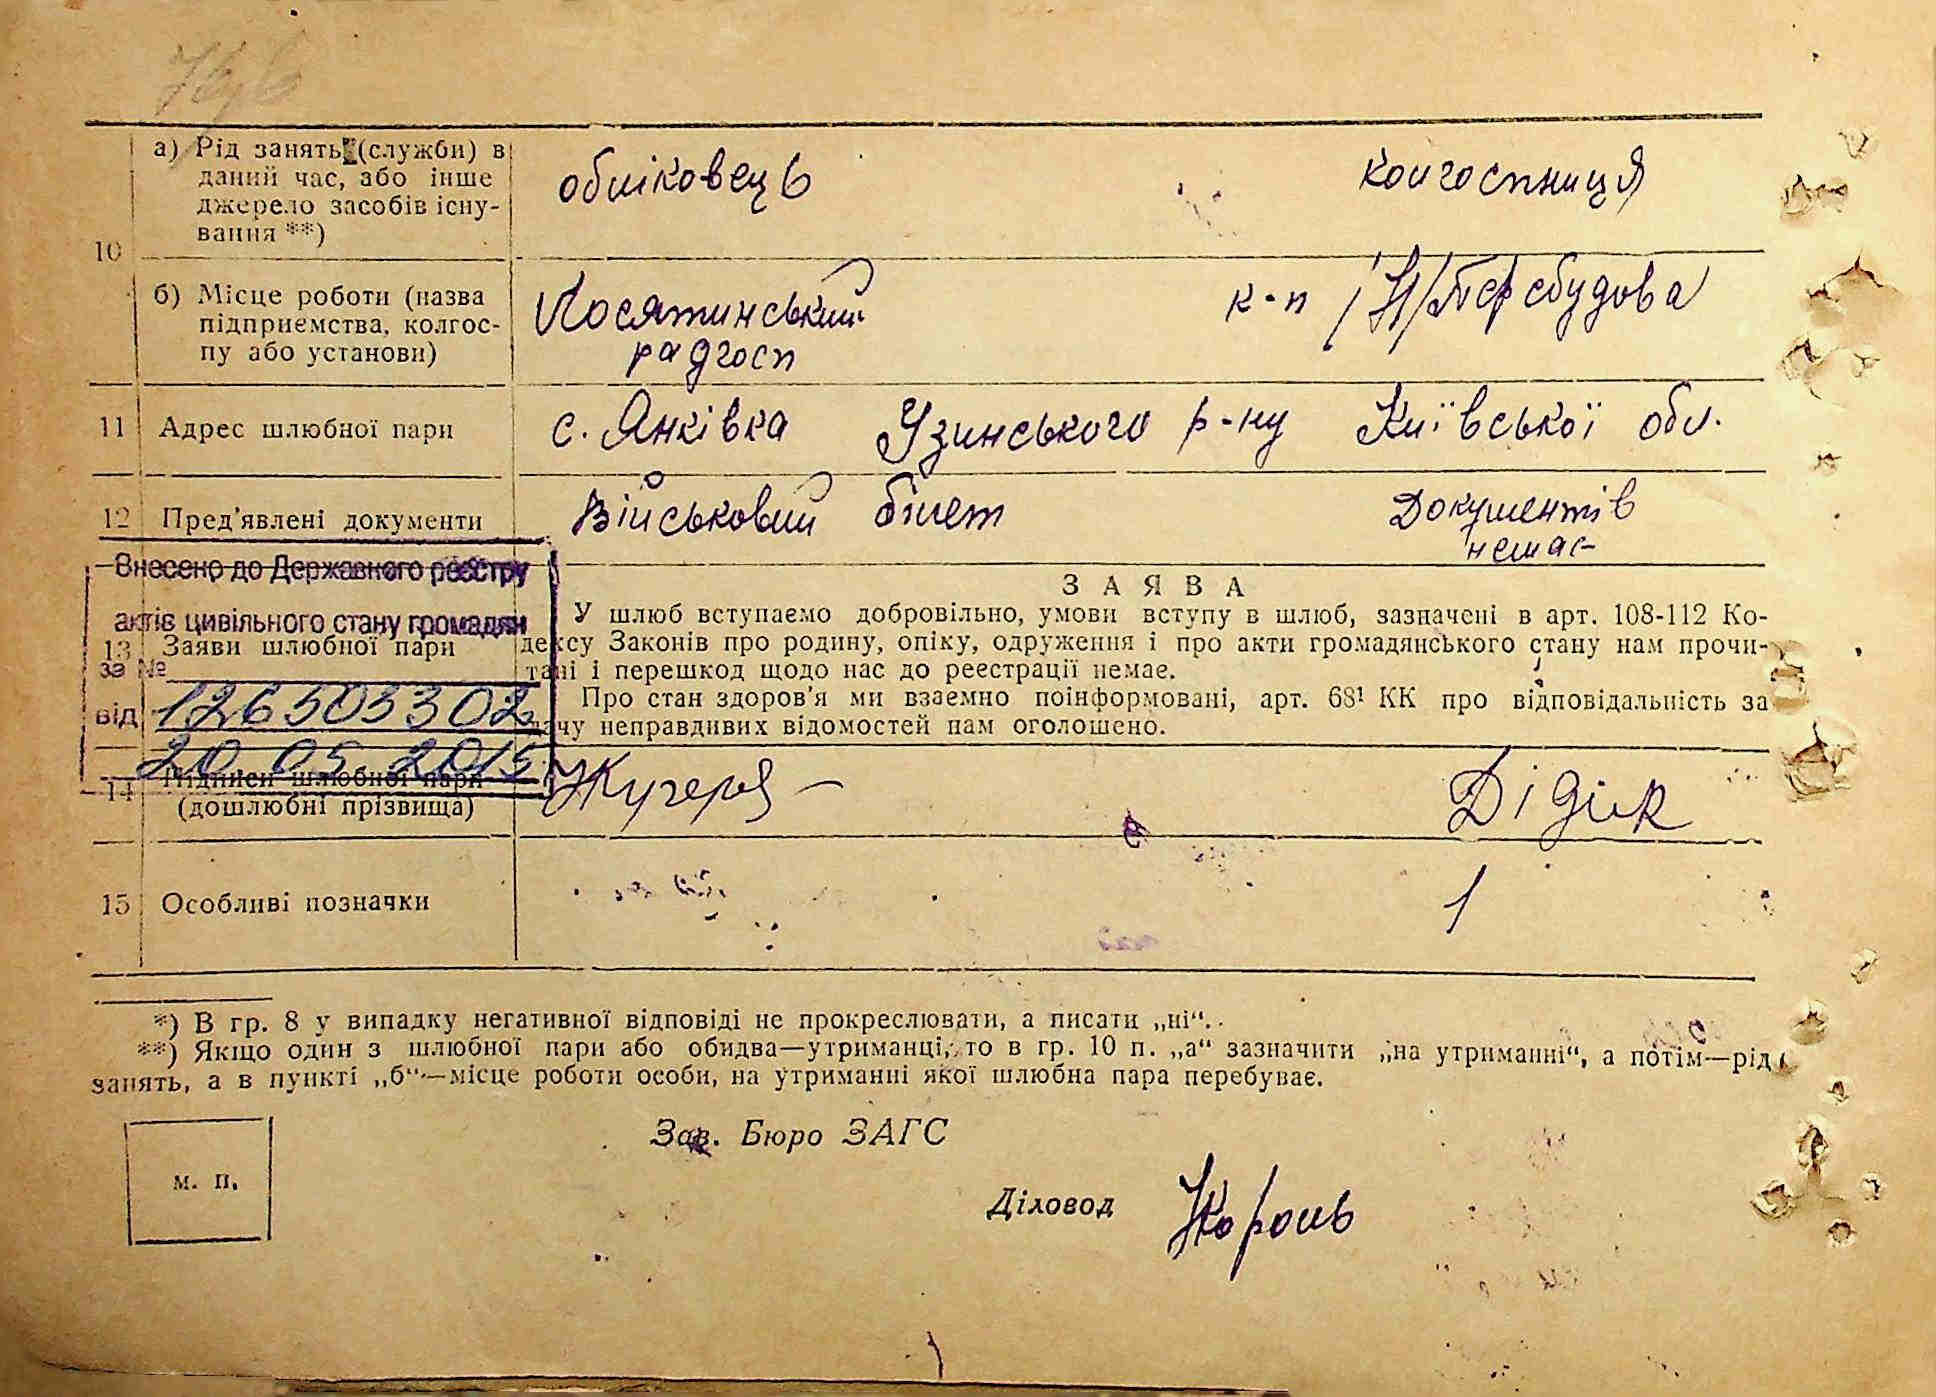 а) Рід занять (служби) в
даний час, або інше
джерело засобів існу-
вання **)
обліковець
колгоспниця
10
б) Місце роботи (назва
підприємства, колгос-
пу або установи)
радгосп
к-п Перебудова
11 Адрес шлюбної пари
с. Янківка Узинського р-ну Київської обл.
12 Пред'явлені документи
Військовий білет
Документів
немає
Внесено до Державного реєстру
актів цивільного стану громадян
за №
126503302
від
20 05 2015
13 Заяви шлюбної пари
ЗАЯВА
У шлюб вступаємо добровільно, умови вступу в шлюб, зазначені в арт. 108-112 Ко-
дексу Законів про родину, опіку, одруження і про акти громадянського стану нам прочи-
тані і перешкод щодо нас до реєстрації немає.
Про стан здоров'я ми взаємно поінформовані, арт. 68¹ КК про відповідальність за
дачу неправдивих відомостей нам оголошено.
14 Підписи шлюбної пари
(дошлюбні прізвища)
Дідік
15 Особливі позначки
*) В гр. 8 у випадку негативної відповіді не прокреслювати, а писати „ні“.
**) Якщо один з шлюбної пари або обидва—утриманці, то в гр. 10 п. „а“ зазначити „на утриманні“, а потім—рід
занять, а в пункті „б“—місце роботи особи, на утриманні якої шлюбна пара перебуває.
м. п.
Зав. Бюро ЗАГС
Діловод Король